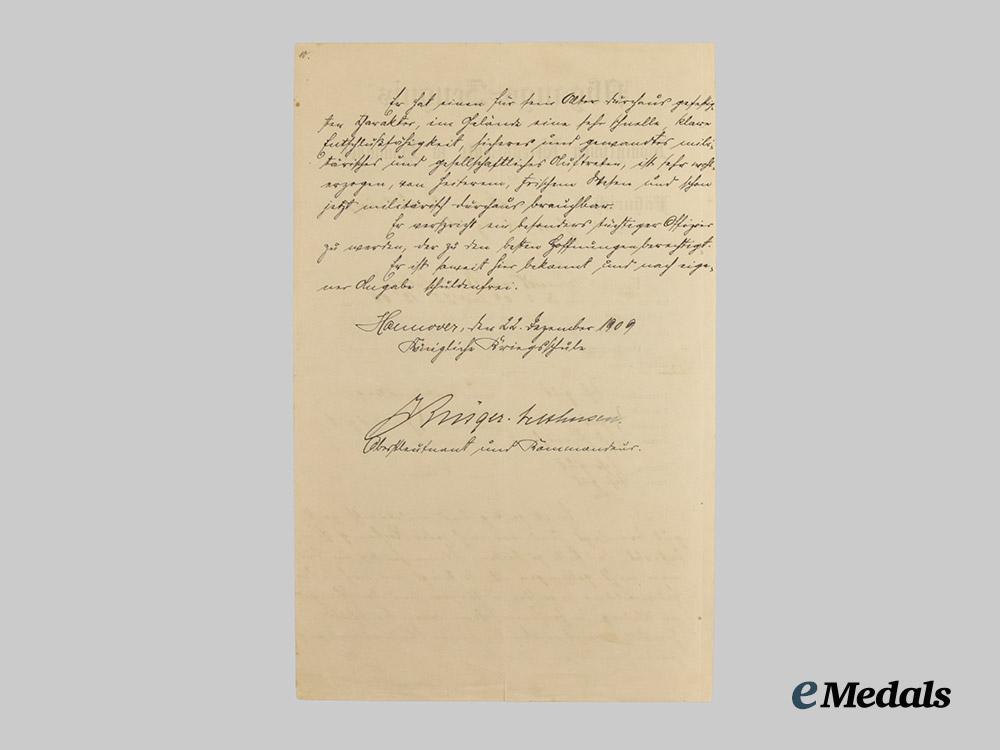 Er hat einen für sein Alter durchaus gefestig-
ten Charakter, im Gelände eine sehr schnelle, klare
Entschlußfähigkeit, sicheres und gewandtes mili-
tärisches und gesellschaftliches Auftreten, ist sehr wohl-
erzogen, von heiterem, frischem Wesen und schon
jetzt militärisch durchaus brauchbar.
Er verspricht ein besonders tüchtiger Offizier
zu werden, der zu den besten Hoffnungen berechtigt.
Er ist soweit hier bekannt und nach eige-
ner Angabe schuldenfrei.
Hannover, den 22. Dezember 1909
Königliche Kriegsschule
Krüger-Velthusen.
Oberstleutnant und Kommandeur.
eMedals